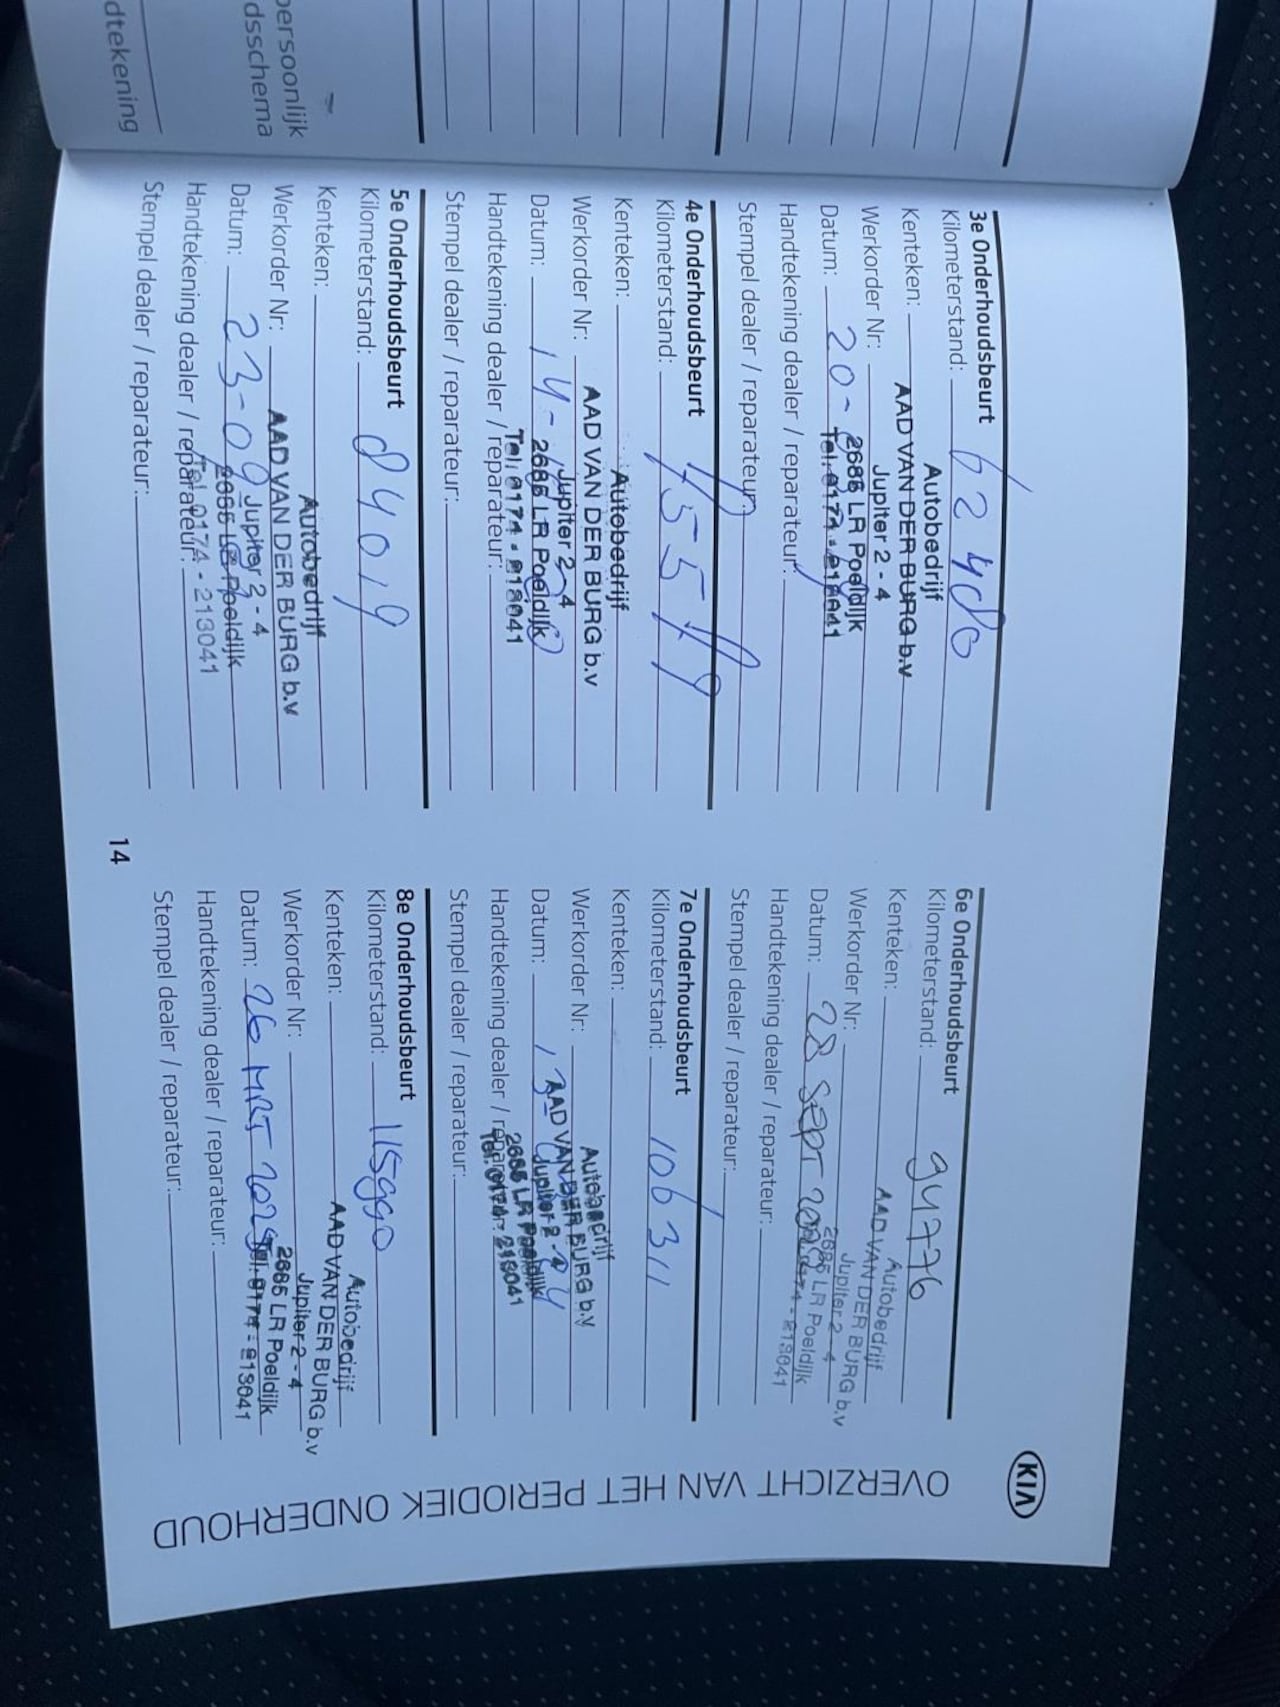 persoonlijk
dsschema
dtekening
KIA
OVERZICHT VAN HET PERIODIEK ONDERHOUD
3e Onderhoudsbeurt
Kilometerstand: 62480
Kenteken:
Werkorder Nr:
Datum: 20-
Handtekening dealer / reparateur:
Stempel dealer / reparateur:
Autobedrijf
AAD VAN DER BURG b.v
Jupiter 2 - 4
2685 LR Poeldijk
Tel. 0174 - 213041
4e Onderhoudsbeurt
Kilometerstand:
Kenteken:
Werkorder Nr:
Datum: 14-
Handtekening dealer / reparateur:
Stempel dealer / reparateur:
Autobedrijf
AAD VAN DER BURG b.v
Jupiter 2 - 4
2685 LR Poeldijk
Tel. 0174 - 213041
5e Onderhoudsbeurt
Kilometerstand: 84019
Kenteken:
Werkorder Nr:
Datum: 23-09
Handtekening dealer / reparateur:
Stempel dealer / reparateur:
Autobedrijf
AAD VAN DER BURG b.v
Jupiter 2 - 4
2685 LR Poeldijk
Tel. 0174 - 213041
6e Onderhoudsbeurt
Kilometerstand: 94776
Kenteken:
Werkorder Nr:
Datum: 28 SEPT
Handtekening dealer / reparateur:
Stempel dealer / reparateur:
Autobedrijf
AAD VAN DER BURG b.v
Jupiter 2 - 4
2685 LR Poeldijk
Tel. 0174 - 213041
7e Onderhoudsbeurt
Kilometerstand: 106311
Kenteken:
Werkorder Nr:
Datum:
Handtekening dealer / reparateur:
Stempel dealer / reparateur:
Autobedrijf
AAD VAN DER BURG b.v
Jupiter 2 - 4
2685 LR Poeldijk
Tel. 0174 - 213041
8e Onderhoudsbeurt
Kilometerstand: 115990
Kenteken:
Werkorder Nr:
Datum: 26 MRT 2025
Handtekening dealer / reparateur:
Stempel dealer / reparateur:
Autobedrijf
AAD VAN DER BURG b.v
Jupiter 2 - 4
2685 LR Poeldijk
Tel. 0174 - 213041
14